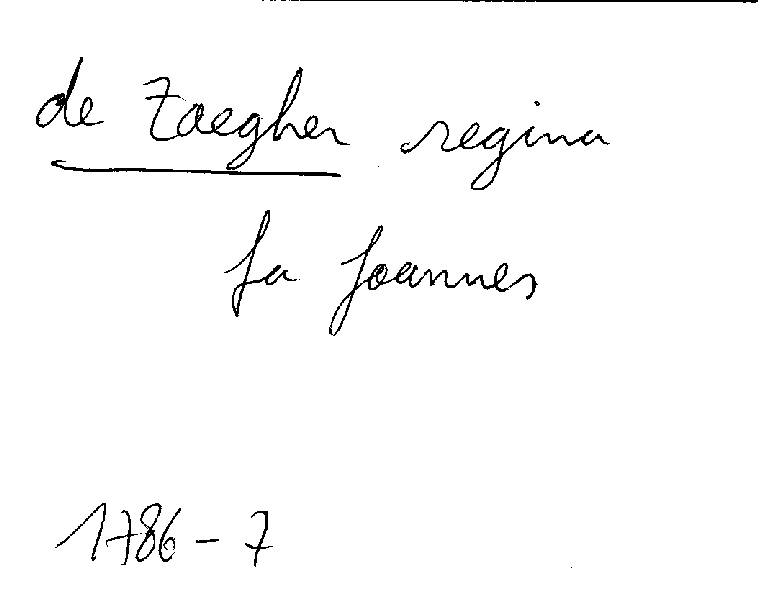 de Zaegher regina
fa Joannes
1786 - 7